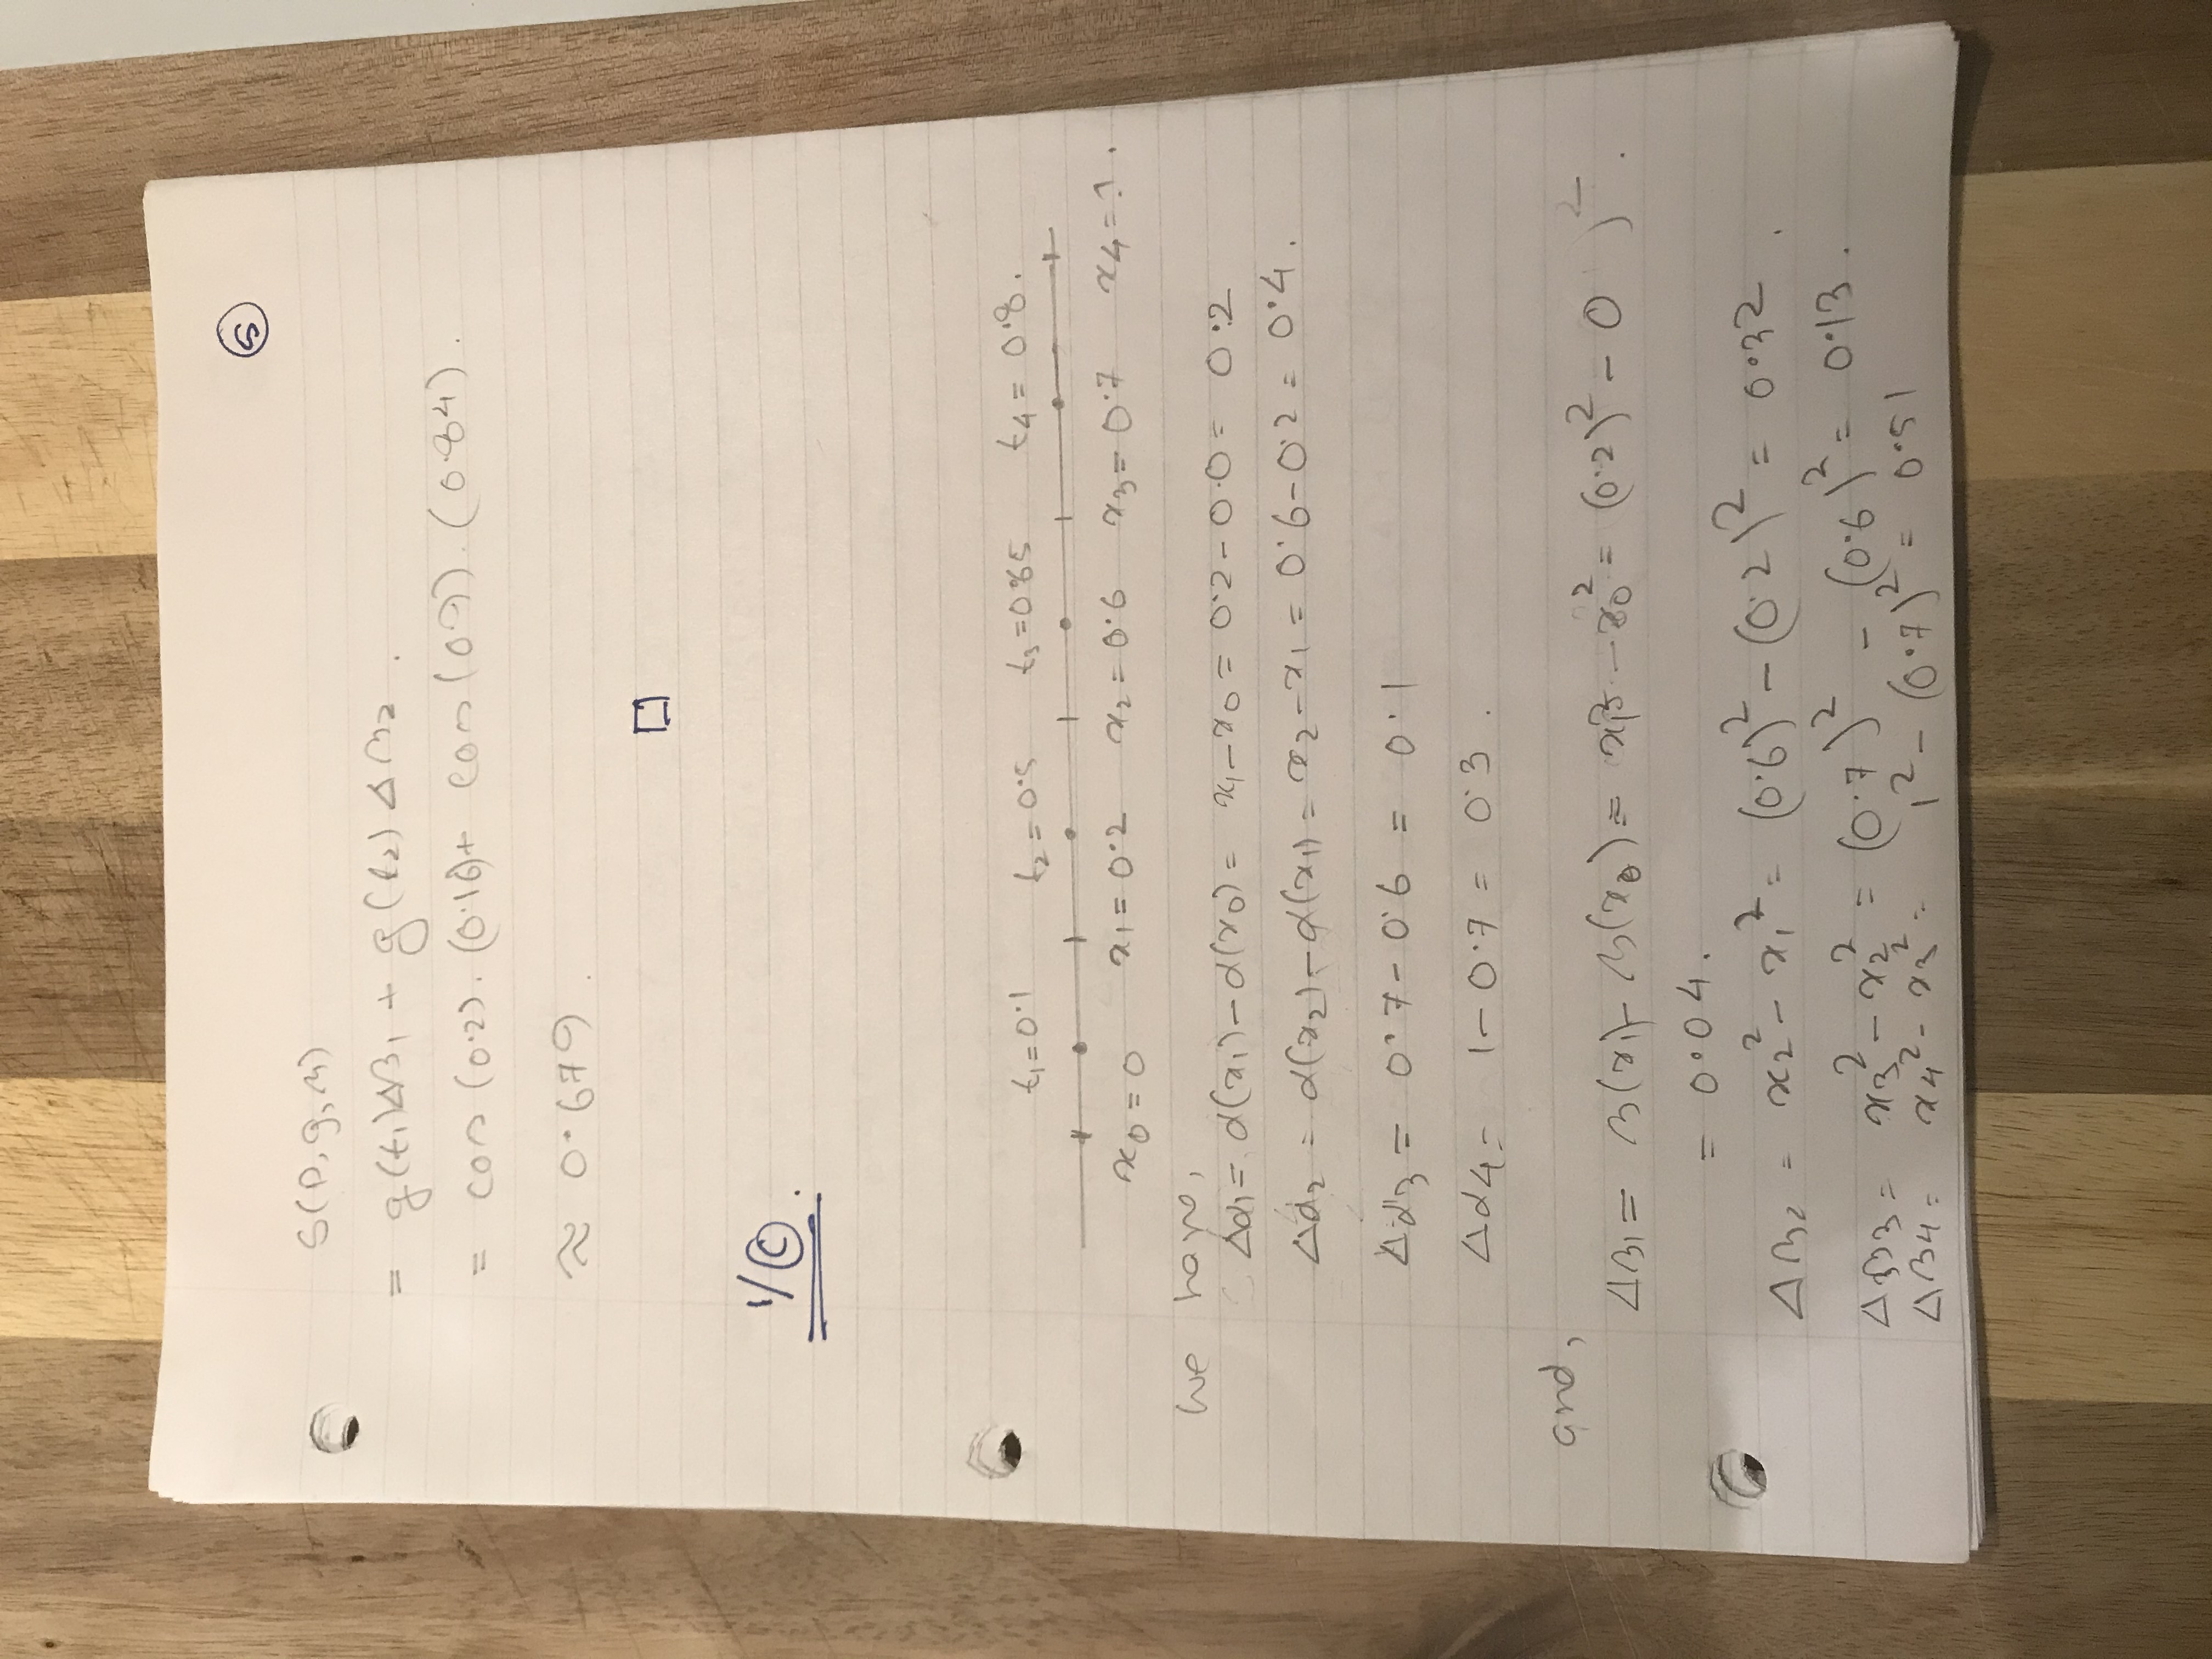 5
S(P, g, β)
= g(t₁)Δβ₁ + g(t₂)Δβ₂.
= cos(0.2).(0.16)+ cos(0.7).(0.84).
≈ 0.679.
□
1/ⓒ.
t₁=0.1 t₂=0.5 t₃=0.65 t₄=0.8.
x₀=0 x₁=0.2 x₂=0.6 x₃=0.7 x₄=1.
We have,
Δα₁= α(x₁)-α(x₀)= x₁-x₀= 0.2-0.0= 0.2
Δα₂ = α(x₂)-α(x₁)= x₂-x₁ = 0.6-0.2 = 0.4.
Δα₃ = 0.7-0.6 = 0.1
Δα₄= 1-0.7= 0.3.
and,
Δβ₁= β(x₁)-β(x₀)= x₁² - x₀² = (0.2)² - 0 )².
= 0.04.
Δβ₂ = x₂² - x₁² = (0.6)² - (0.2)² = 0.32.
Δβ₃= x₃² - x₂² = (0.7)² - (0.6)² = 0.13.
Δβ₄= x₄² - x₃² = 1² - (0.7)² = 0.51